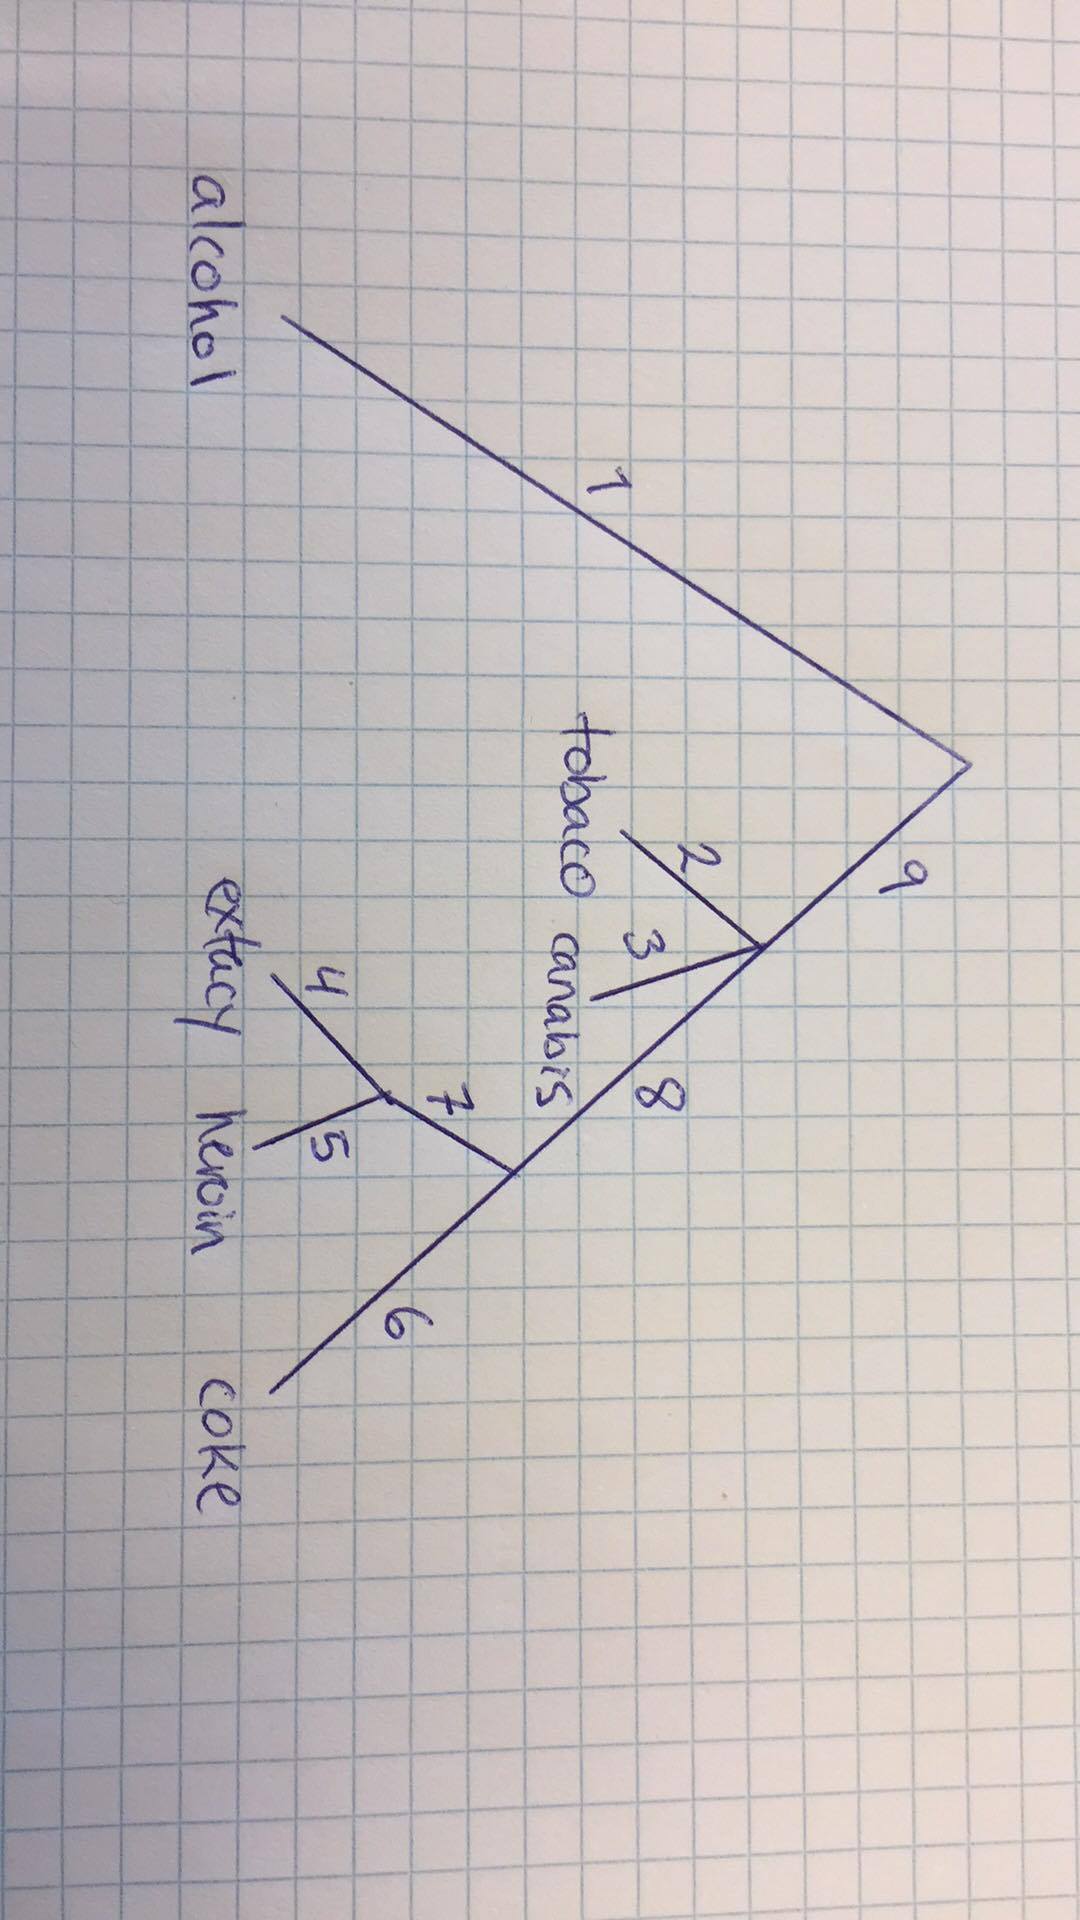 9
2
3
8
1
tobaco
canabis
7
6
4
5
alcohol
extacy
heroin
coke